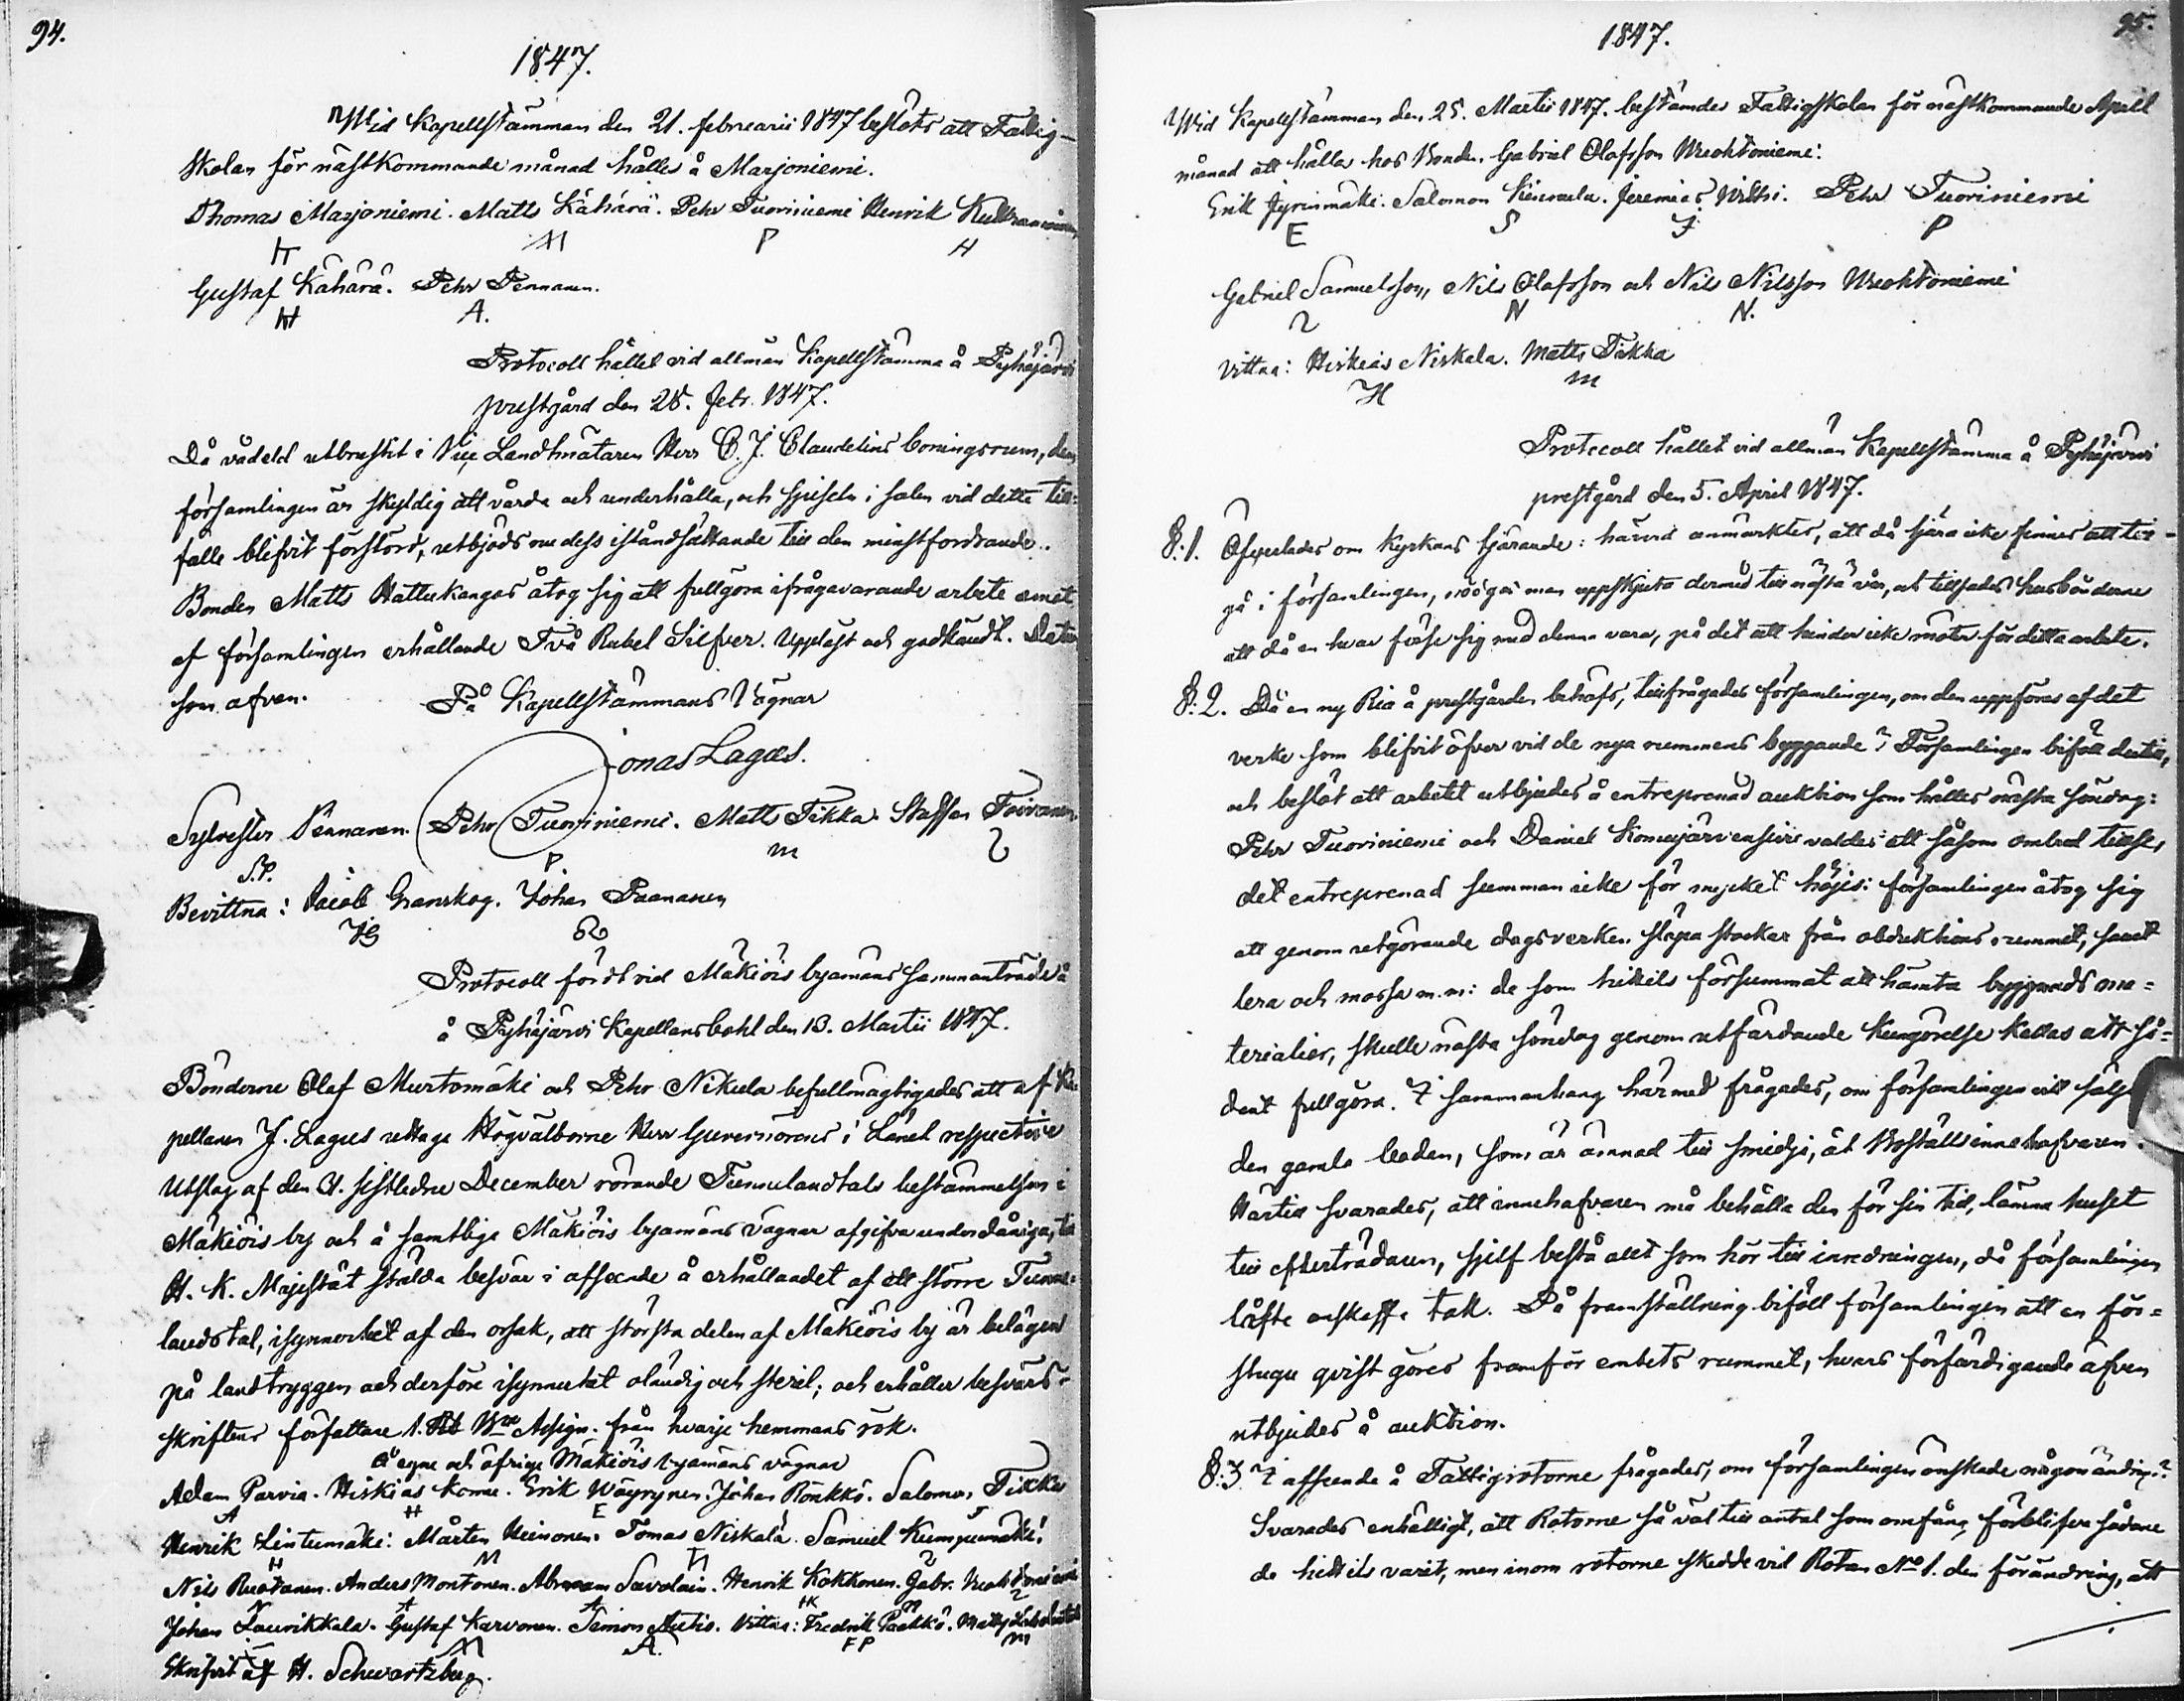 94.
1847.
Wid Kapellstämman den 21. februarii 1847 beslöts att Fattig-
skolan för nästkommande månad hålles å Marjoniemi.
Thomas Marjoniemi. Matts Kähärä. Pehr Tuoriniemi Henrik
H M P H
Gustaf Kähärä. Pehr Pennanen.
H A.
Protocoll hållet vid allmän Kapellstämma å Pyhäjärvi
prestgård den 28. febr. 1847.
Då vådeld utbrustit i Vice Landtmätaren Herr C. J. Claudelins boningsrum, dem
församlingen är skyldig att vårda och underhålla, och spiseln i salen vid detta till-
fälle blifvit förstörd, utbjöds om dess iståndsättande till den minstfordrande.
Bonden Matts Hattukangas åtog sig att fullgöra ifrågavarande arbete emot
af församlingen erhållande Två Rubel Silfver. Uppläst och godkändt. Datum
som ofvan. På Kapellstämmans Vägnar
Jonas Lagus.
Sylvester Pennanen. Pehr Tuoriniemi. Matts Tikka. Staffan Toivanen
S.P. P. m
Bevittna: Jacob Granskog. Johan Paananen
JG
Protocoll fördt vid Mäkiöis byamäns sammanträde å
å Pyhäjärvi Kapellansbohl den 13. Martii 1847.
Bönderne Olaf Murtomäki och Pehr Nikula befullmägtigades att af Ka
pellanen J. Lagus uttaga Högvälborne Herr Guvernörens i Länet respective
Utslag af den 31. sistledne December rörande Tunnelandtals bestämmelsen i
Mäkiöis by och å samtlige Mäkiöis byamäns vägnar afgifva underdåniga, till
H. K. Majestät ställda besvär i afseende å erhållandet af ett större Tunne-
landstal, isynnerhet af den orsak, att största delen af Mäkiöis by är belägen
på landtryggen och derföre isynnerhet oländig och steril; och erhåller besvärs-
skriftens författare 1. Rb Bco Assign. från hvarje hemmans rök.
Å egne och öfrige Mäkiöis byamäns vägnar
Adam Parvia. Hiskias Komu. Erik Wäyrynen. Johan Rönkkö. Salomon Tikka
A H E S
Henrik Lintumäki: Mårten Heinonen. Tomas Niskala. Samuel Kumpumäki!
H M T
Nils Ruotanen. Anders Montonen. Abraam Savolain. Henrik Kokkonen. Gabr.
N A A HK
Johan Laurikkala. Gustaf Karvonen. Simon Autio. Vittna: Fredrik Paakkö. Matts
M A. FP m
Skrifvit af H. Schwartzberg.
95.
1847.
Wid Kapellstämman den 25. Martii 1847. bestämdes Fattigskolan för nästkommande April
månad att hålla hos Bonden Gabriel Olafsson Wuohtoniemi:
Erik Jyrinmäki. Salomon Jeremias Pehr Tuoriniemi
E S J P
Gabriel Samuelsson, Nils Olafsson och Nils Nilsson Wuohtoniemi
N N.
Vittna: Hiskias Niskala. Matts Tikka
H m
Protocoll hållet vid allmän Kapellstämma å Pyhäjärvi
prestgård den 5. April 1847.
§. 1. Öfverlades om Kyrkans tjärande: härvid anmärktes, att då tjära icke finnes att till-
gå i församlingen, man uppskjuta dermed till nästa vår, och tillsades husbönderne
att då en hvar förse sig med denna vara, på det att hinder icke möter för detta arbete.
§: 2. Då en ny Ria å prestgården behöfs, tillfrågades församlingen, om den uppföres af det
verke som blifvit öfver vid de nya rummens byggande? Församlingen biföll dertill,
och beslöt att arbetet utbjudes å entreprenad auktion som hålles nästa söndag:
Pehr Tuoriniemi och Daniel valdes att såsom ombud tillse,
det entreprenad summan icke för mycket höjes: församlingen åtog sig
att genom utgörande dagsverken släpa stockar från obduktions rummet, samt
lera och mossa m.m: de som hittils försummat att hämta byggnads ma-
terialier, skulle nästa söndag genom utfärdande kungörelse kallas att så-
dant fullgöra. I sammanhang härmed frågades, om församlingen vill sälja
den gamla boden, som är ämnad till smedja, åt Boställsinnehafvaren.
Härtill svarades, att innehafvaren må behålla den för sin tid, lämna huset
till efterträdaren, sjelf bestå allt som hör till inredningen, då församlingen
löfte anskaffa tak. På framställning biföll församlingen att en för-
stugu qvist göres framför embets rummet, hvars förfärdigande äfven
utbjudes å auktion.
§: 3. I afseende å Fattigrotorne frågades, om församlingen önskade någon ändring?
Svarades enhälligt, att Rotorne så väl till antal som omfång förblifva sådane
de hittils varit, men inom rotorne skedde vid Rotan No 1. den förändring, att